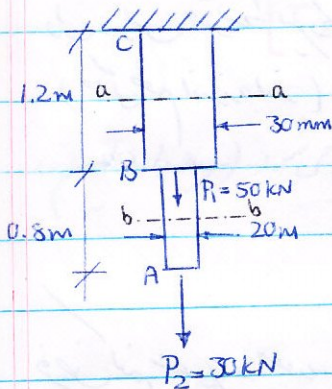 C
1.2m
a a
30mm
B
P₁=50KN
b b
0.8m
20m
A
P₂=30KN